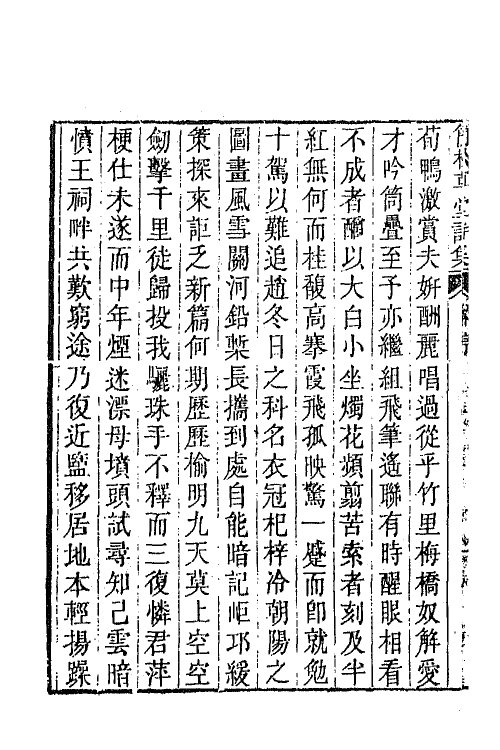 荀鴨激賞夫妍酬麗唱過從乎竹里梅橋奴解愛
才吟筒疊至予亦繼組飛筆遙聯有時醒眼相看
不成者酹以大白小坐燭花頻翦苦索者刻及半
紅無何而桂馥高搴霞飛孤映驚一蹙而卽就勉
十駕以難追趙冬日之科名衣冠杞梓冷朝陽之
圖畫風雪關河鉛槧長攜到處自能暗記岠邛緩
策探來詎乏新篇何期歷歷榆明九天莫上空空
劒擊千里徒歸投我驪珠手不釋而三復憐君萍
梗仕未遂而中年煙迷漂母墳頭試尋知己雲暗
憤王祠畔共歎窮途乃復近鹽移居地本輕揚躁